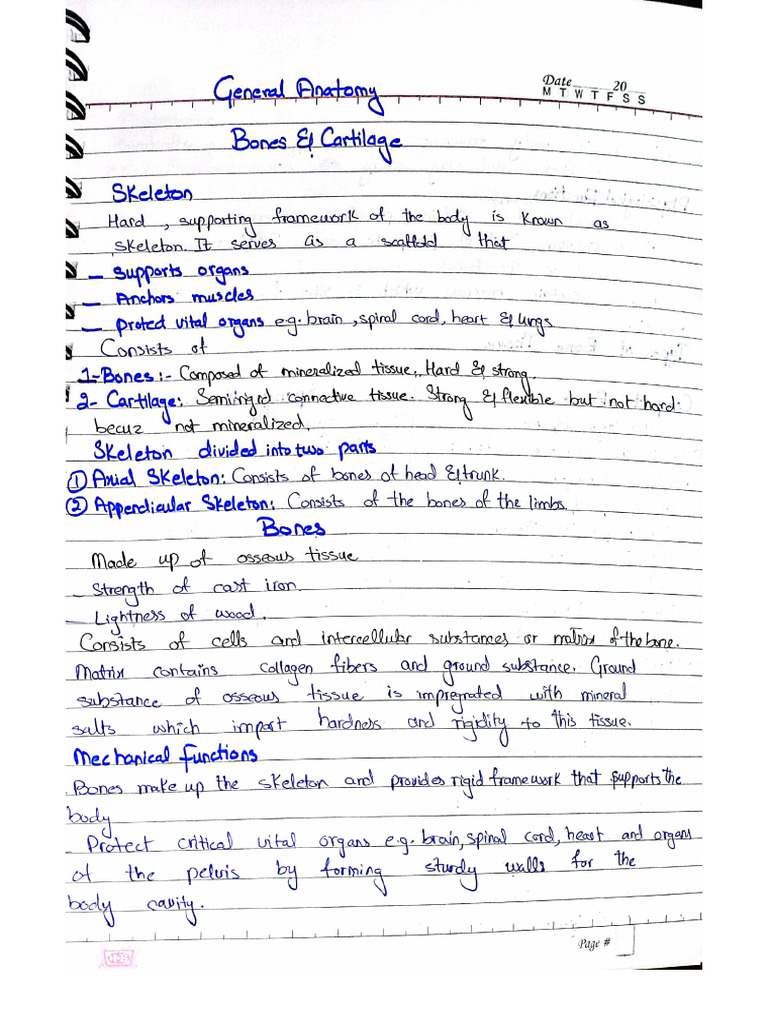 Date 20
M T W T F S S
General Anatomy
Bones & Cartilage
Skeleton
Hard , supporting framework of the body is known as
skeleton. It serves as a scaffold that
– Supports organs
– Anchors muscles
– Proted vital organs e.g. brain, spiral cord, heart & lungs
Consists of
1-Bones:- Composed of mineralized tissue. Hard & strong.
2- Cartilage: Semirigid connective tissue. Strong & flexible but not hard
becuz not mineralized.
Skeleton divided into two parts
① Axial Skeleton: Consists of bones of head & trunk.
② Appendicular Skeleton: Consists of the bones of the limbs.
Bones
Made up of osseous tissue
– Strength of cast iron.
– Lightness of wood.
Consists of cells and intercellular substances or matrix of the bone.
Matrix contains collagen fibers and ground substance. Ground
substance of osseous tissue is impregrated with mineral
salts which impart hardness and rigidity to this tissue.
Mechanical functions
Bones make up the skeleton and provides rigid framework that supports the
body
– Protect critical vital organs e.g. brain, spinal cord, heart and organs
of the pelvis by forming sturdy walls for the
body cavity.
Page #